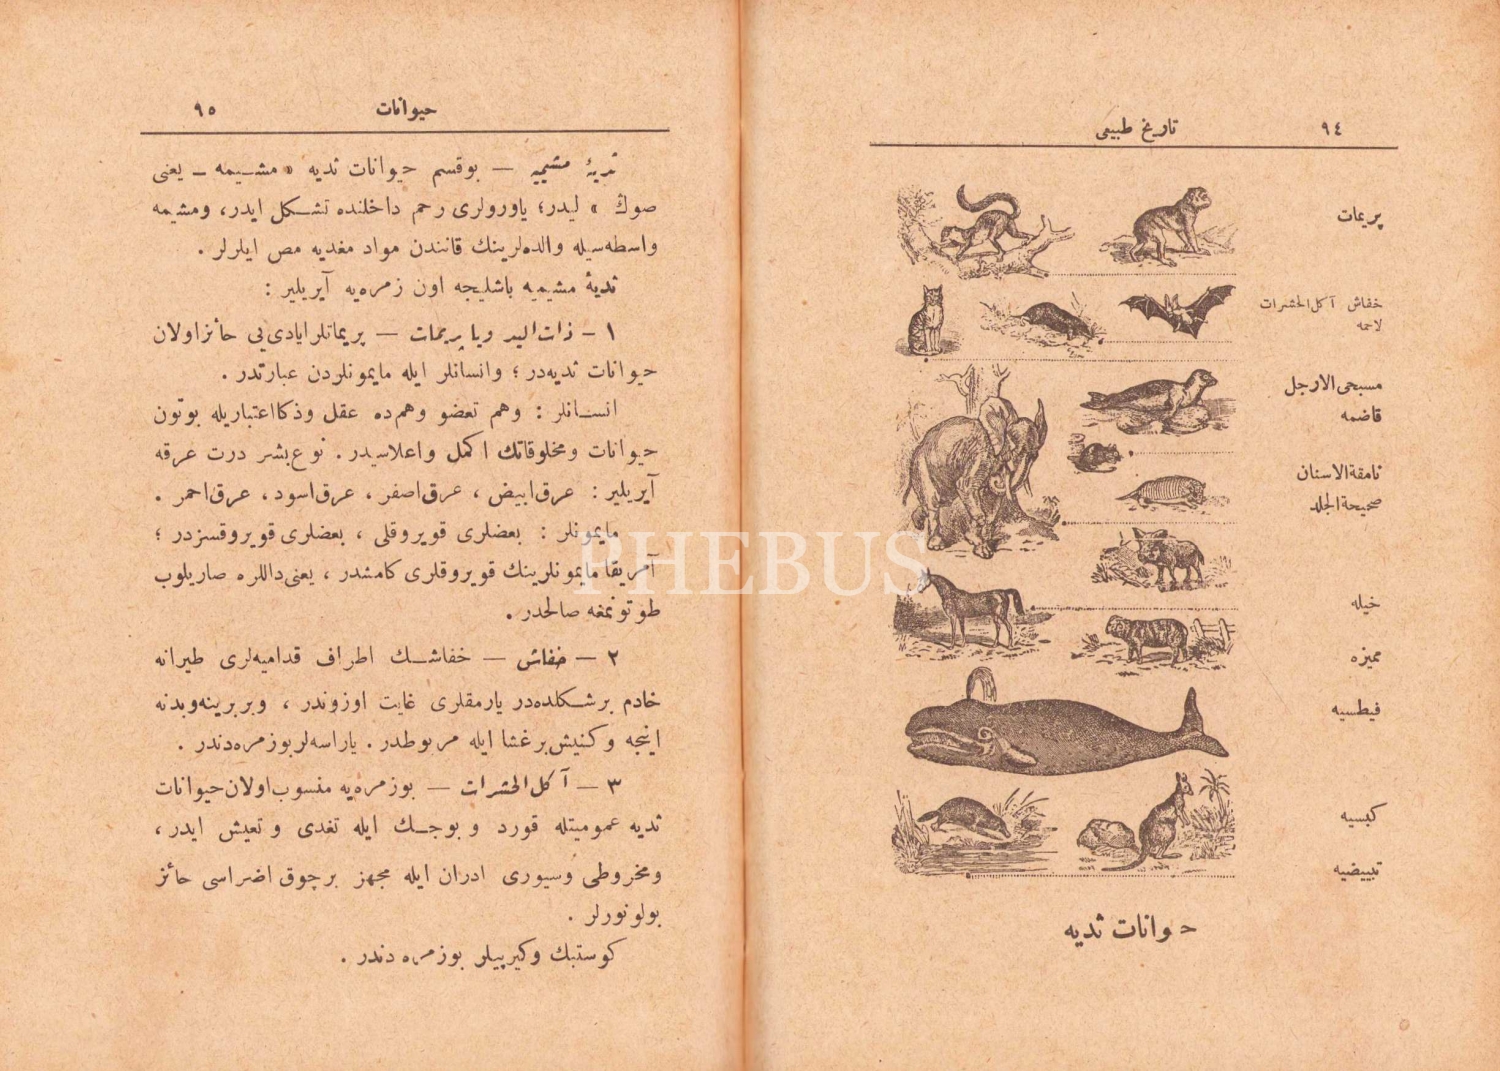 ٩٤ تاریخ طبیعی
پریمات
خفاش آكل الحشرات
لاحمه
مسبحی الارجل
قاضمه
ناقمة الاسنان
صحیحة الجلد
خیله
ممیزه
قیطسیه
كیسیه
تبییضیه
حیوانات ثدیه
حیوانات ٩٥
ثدیهٔ مشیمیه — بوقسم حیوانات ثدیه « مشیمه ـ یعنی
صوڭ » لیدر؛ یاورولری رحم داخلنده تشكل ایدر، ومشیمه
واسطه‌سیله والده‌لرینك قانندن مواد مغدیه مص ایلرلر .
ثدیهٔ مشیمیه باشلیجه اون زمره‌یه آیریلیر :
١ - ذات الید ویا پریمات — پریماتلر ایادی‌یی حائز اولان
حیوانات ثدیه‌در ؛ وانسانلر ایله مایمونلردن عبارتدر .
انسانلر : وهم تعضو وهم‌ده عقل وذكا اعتباریله بوتون
حیوانات ومخلوقاتك اكمل واعلاسیدر . نوع‌بشر درت عرقه
آیریلیر : عرق‌ابیض ، عرق‌اصفر ، عرق‌اسود ، عرق‌احمر .
مایمونلر : بعضلری قویروقلی ، بعضلری قویروقسزدر ؛
آمریقا مایمونلرینك قویروقلری كامشدر ، یعنی‌داللره صاریلوب
طوتونمغه صالحدر .
PHEBUS
٢ - خفاش — خفاشك اطراف قدامیه‌لری طیرانه
خادم برشكلده‌در یارمقلری غایت اوزوندر ، وبربرینه‌وبدنه
اینجه وكنیش‌برغشا ایله مربوطدر . یاراسه‌لر‌بوزمره‌دندر .
٣ - آكل الحشرات — بوزمره‌یه منسوب‌اولان‌حیوانات
ثدیه عمومیتله قورد وبوجك ایله تغدی وتعیش ایدر ،
ومخروطی وسیوری ادران ایله مجهز برچوق اضراسی حائز
بولونورلر .
كوستبك وكیرپیلر بوزمره‌دندر .